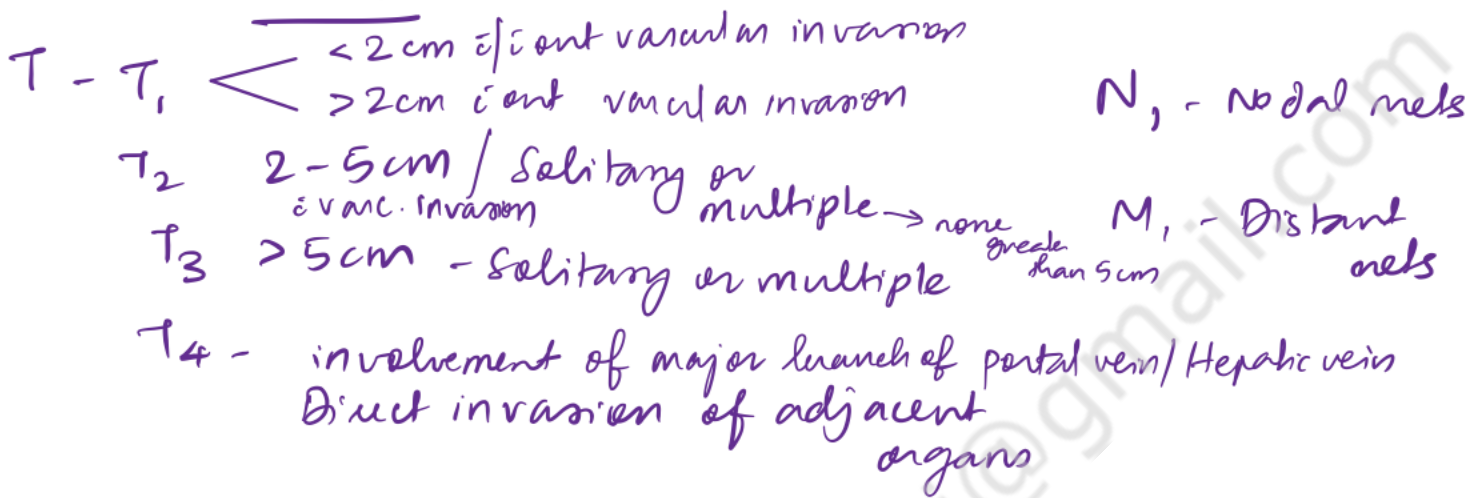 T - T1 < 2cm c̄/c̄out vascular invasion
> 2cm c̄out vascular invasion
N1 - Nodal mets
T2 2-5cm / Solitary or multiple → none greater than 5cm
c̄ vasc. invasion
M1 - Distant mets
T3 > 5cm - Solitary or multiple
T4 - involvement of major branch of portal vein/Hepatic vein
Direct invasion of adjacent
organs
@gmail.com